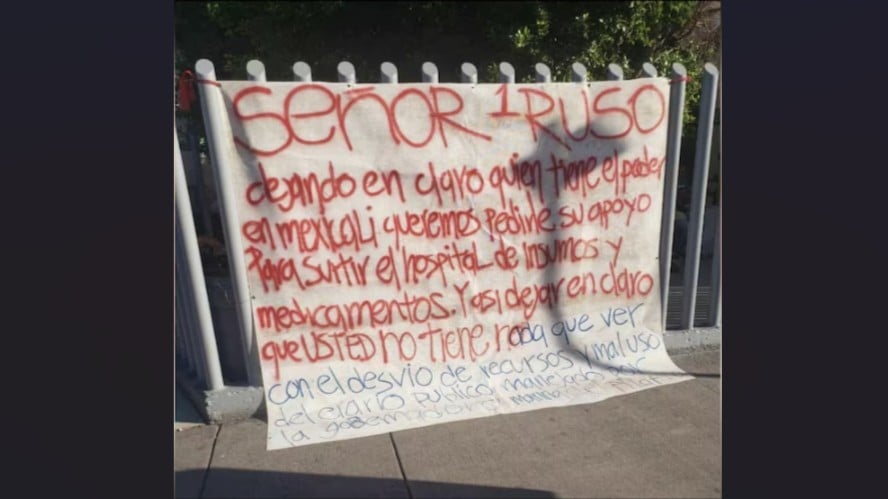 SEÑOR 1 RUSO
dejando en claro quien tiene el poder
en mexicali queremos pedirle su apoyo
Para surtir el hospital de insumos y
medicamentos. Y asi dejar en claro
que USTED no tiene nada que ver
con el desvio de recursos y mal uso
del erario publico manejado por
la gobernadora